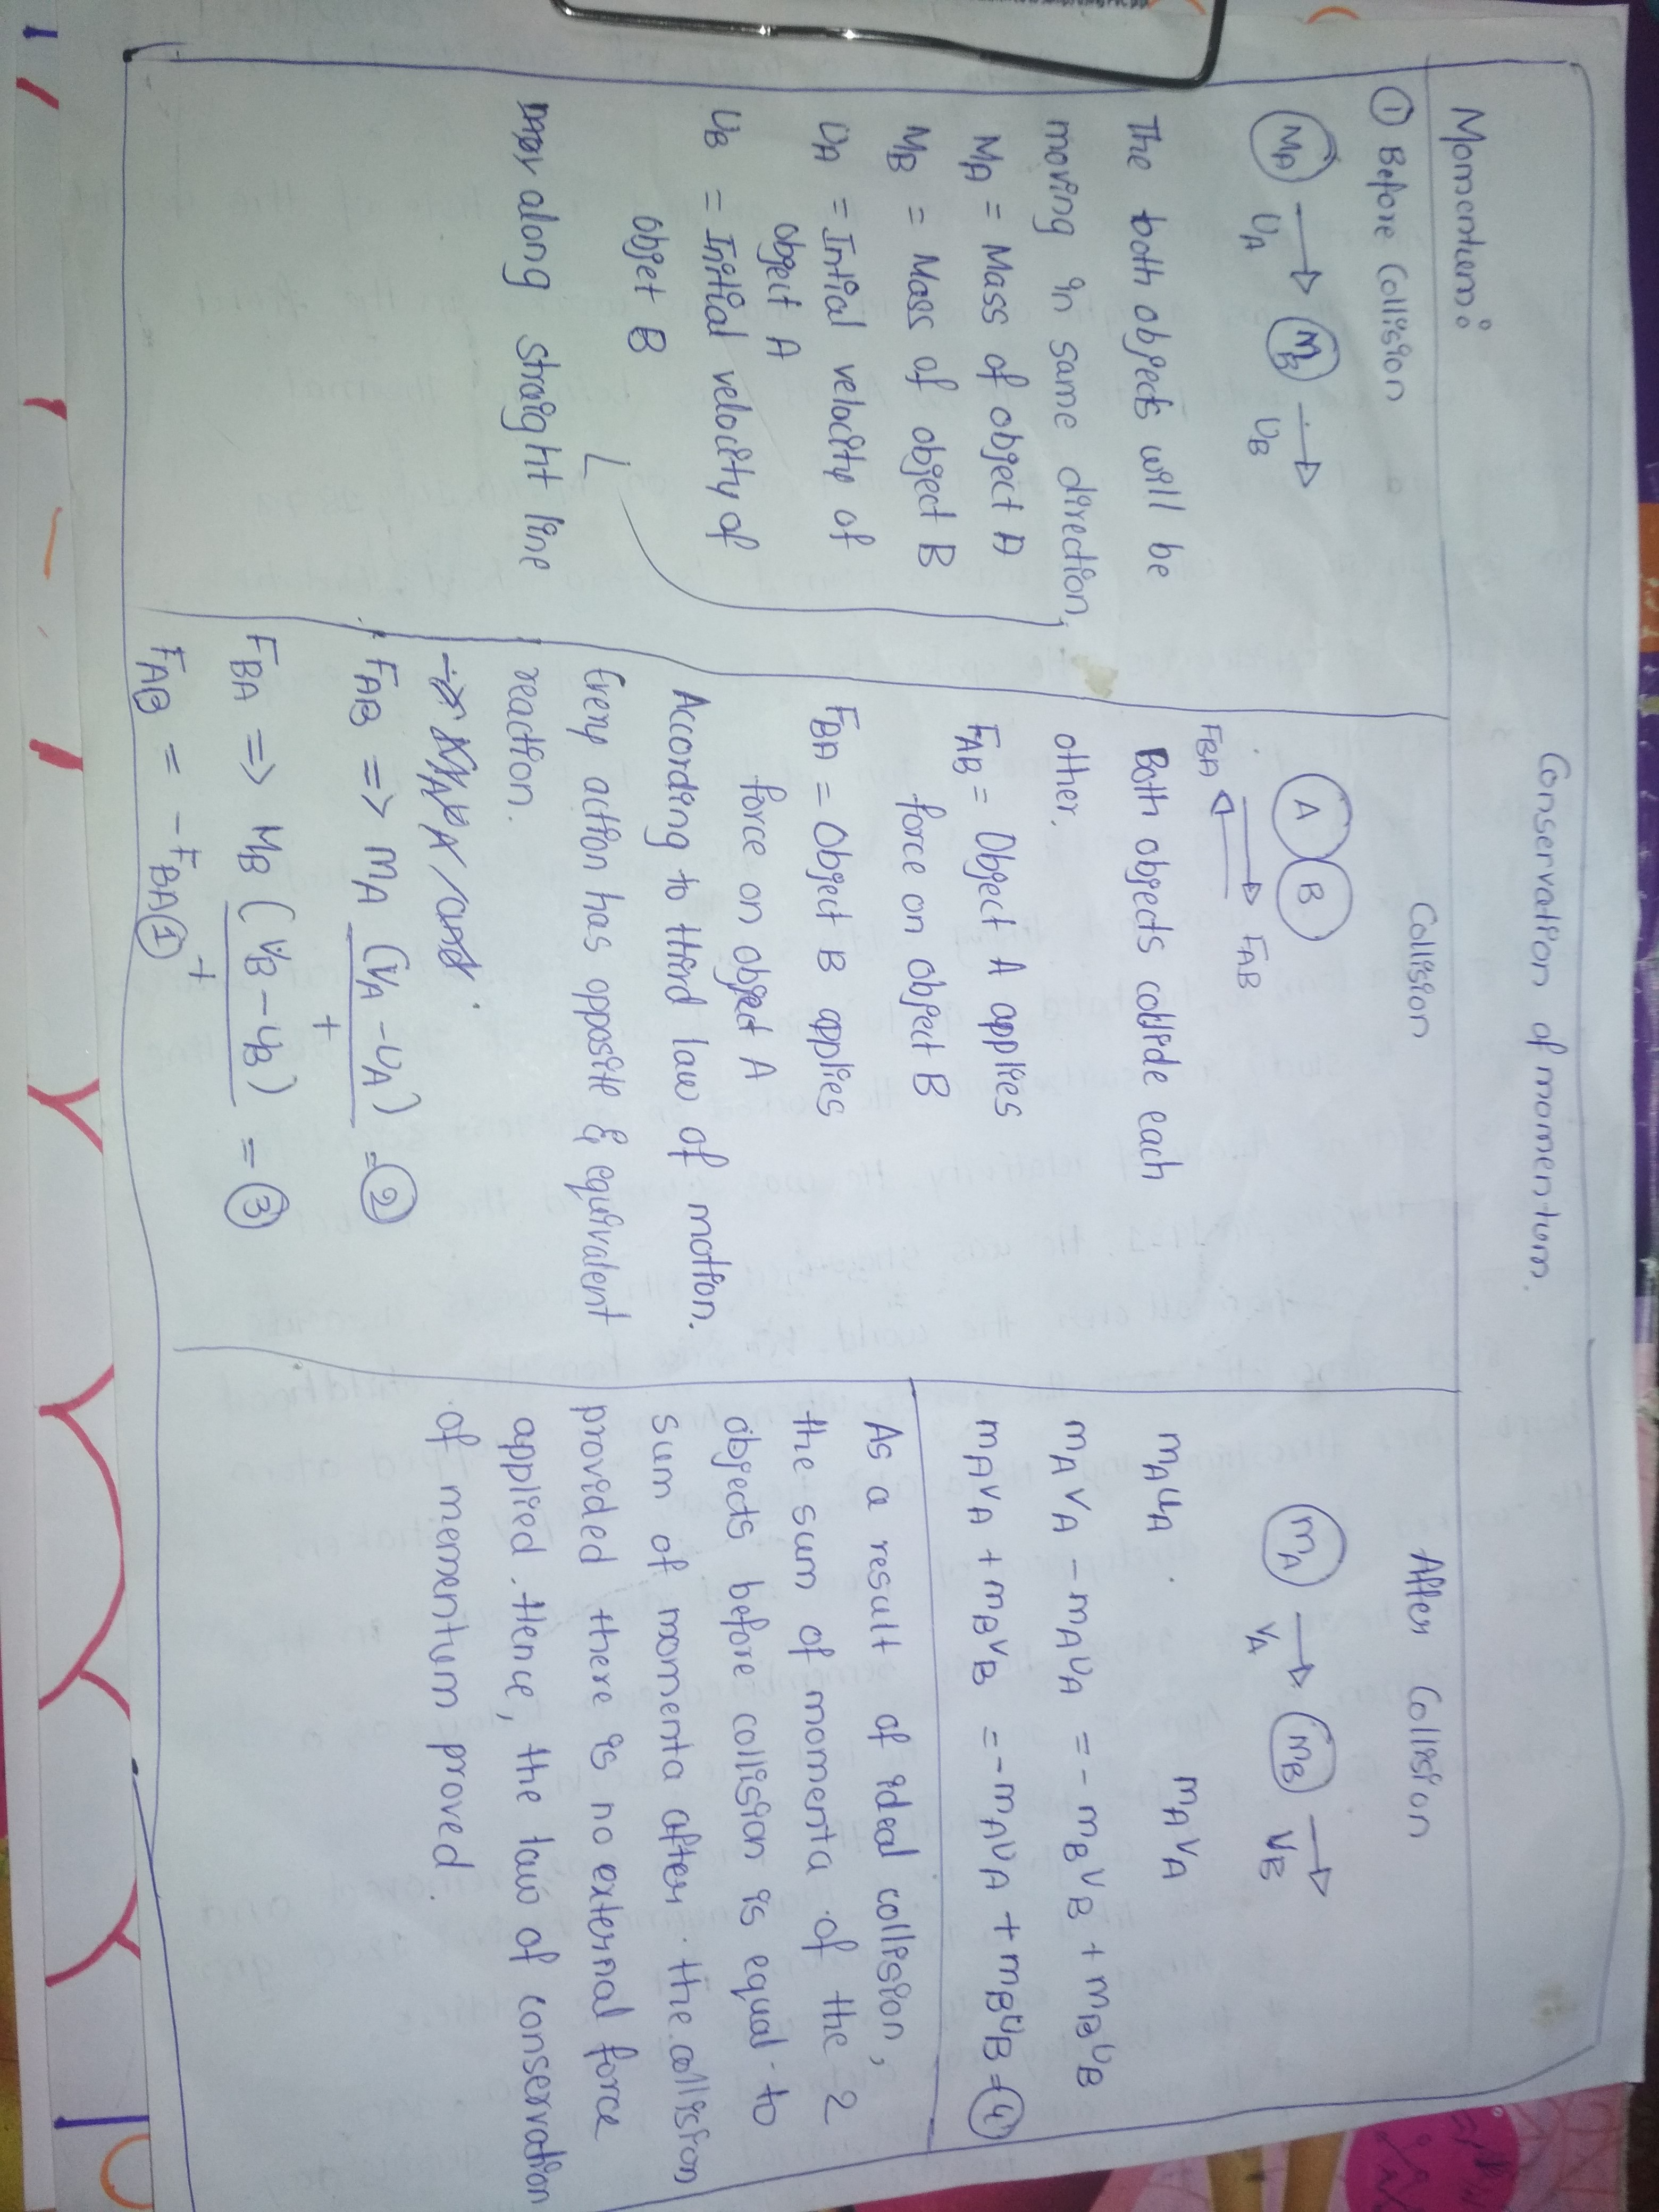 Conservation of momentum.
Momentum:
① Before Collision
MA
mB
UA
UB
The both objects will be
moving in same direction,
along straight line
MA = Mass of object A
MB = Mass of object B
UA = Intial velocity of
object A
UB = Initial velocity of
objet B
Collision
A B
FBA FAB
Both objects collide each
other.
FAB = Object A applies
force on object B
FBA = Object B applies
force on object A
According to third law of motion.
Every action has opposite & equivalent
reaction.
FAB => mA (VA - UA) = ②
t
FBA => MB (VB - UB) = ③
t
FAB = -FBA ①
After Collision
mA mB
VA VB
mAUA. mAVA
mAVA - mAUA = - mBVB + mBUB
mAVA + mBVB = -mAUA + mBUB = ④
As a result of ideal collision,
the sum of momenta of the 2
objects before collision is equal to
sum of momenta after the collision
provided there is no external force
applied. Hence, the law of conservation
of mementum proved.